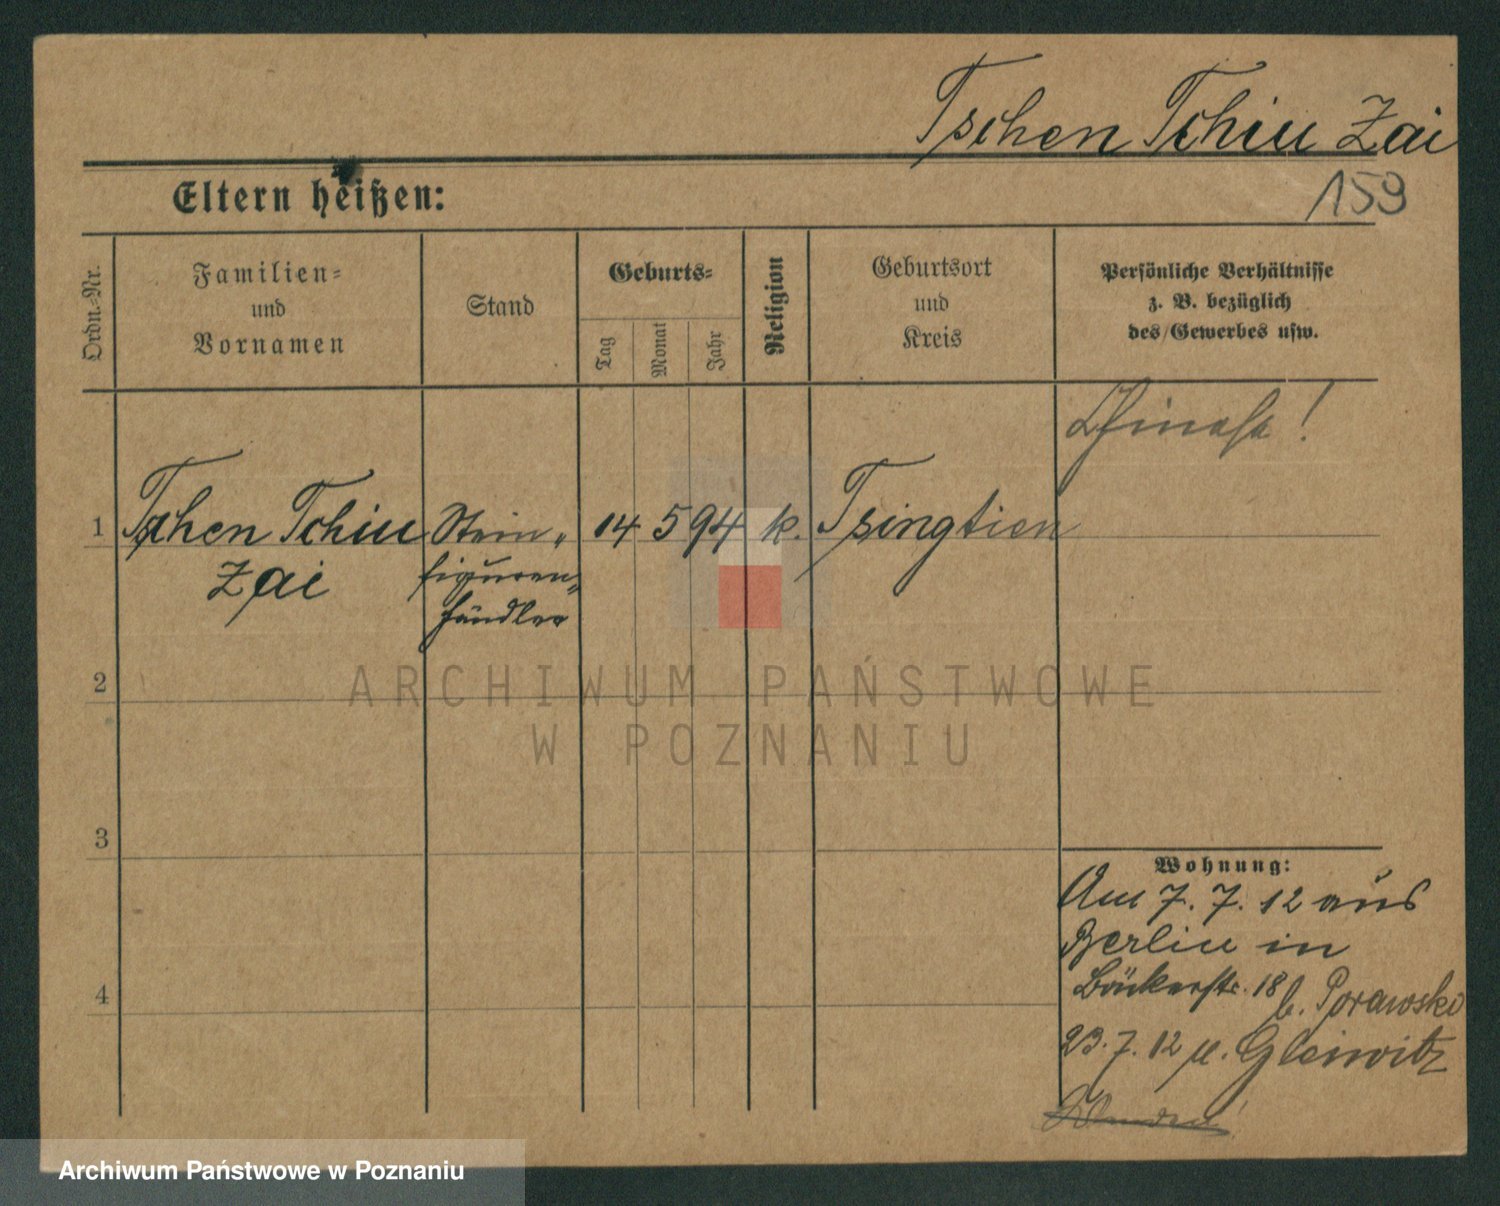 Tschen Tchiu Zai
Eltern heißen:
159
Ordn.-Nr.
Familien-
und
Vornamen
Stand
Geburts-
Tag
Monat
Jahr
Religion
Geburtsort
und
Kreis
Persönliche Verhältnisse
z. B. bezüglich
des Gewerbes usw.
Chinese!
1 Tschen Tchiu Stein- 14 5 94 k. Tsingtien
Zai figuren-
händler
2
ARCHIWUM PAŃSTWOWE
W POZNANIU
3
Wohnung:
Am 7. 7. 12 aus
Berlin in
Bäckerstr. 18 b. Porawski
4
23. 7. 12 n. Gleiwitz
Archiwum Państwowe w Poznaniu